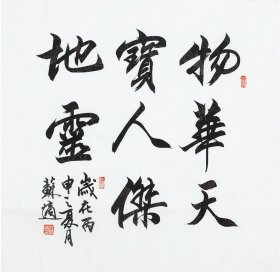 物華天
寶人傑
地靈
歲在丙
申之夏月
蘇適